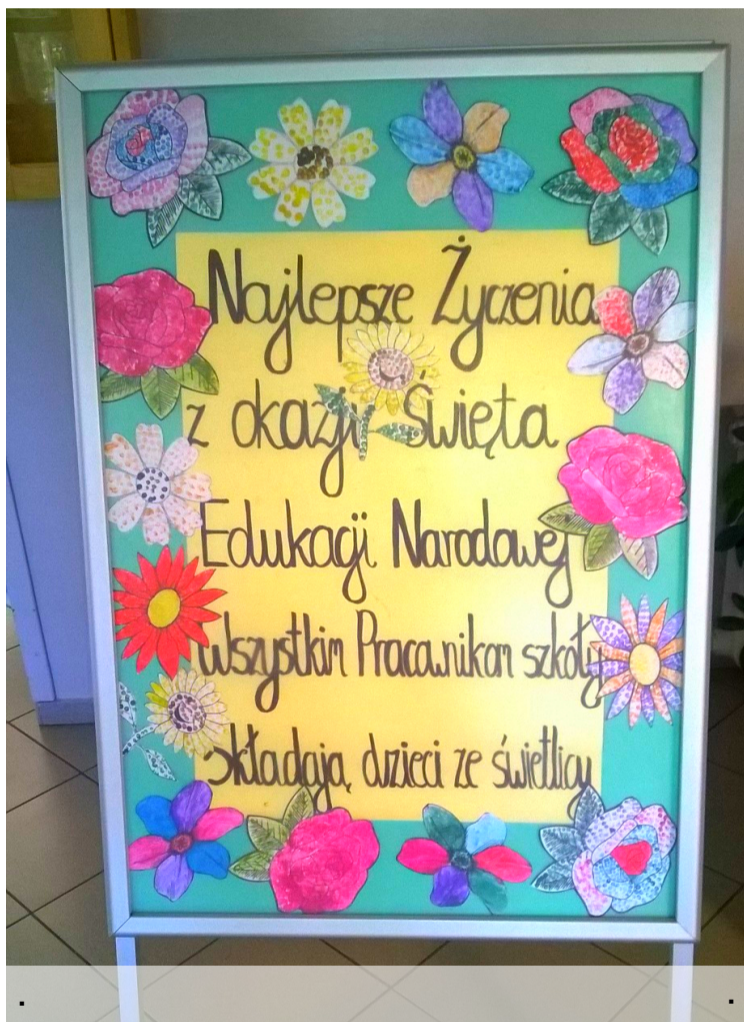 Najlepsze Życzenia
z okazji Święta
Edukacji Narodowej
wszystkim Pracownikom szkoły
składają dzieci ze świetlicy